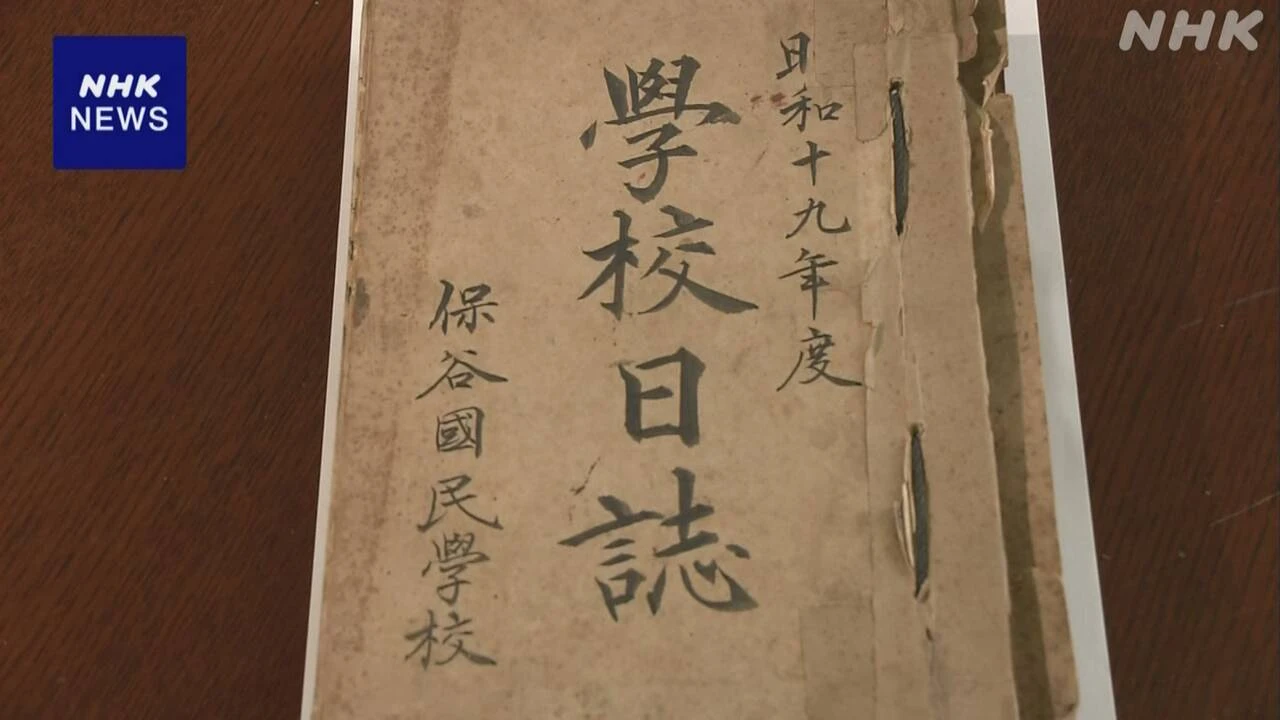 NHK
NEWS
NHK
昭和十九年度
學校日誌
保谷國民學校